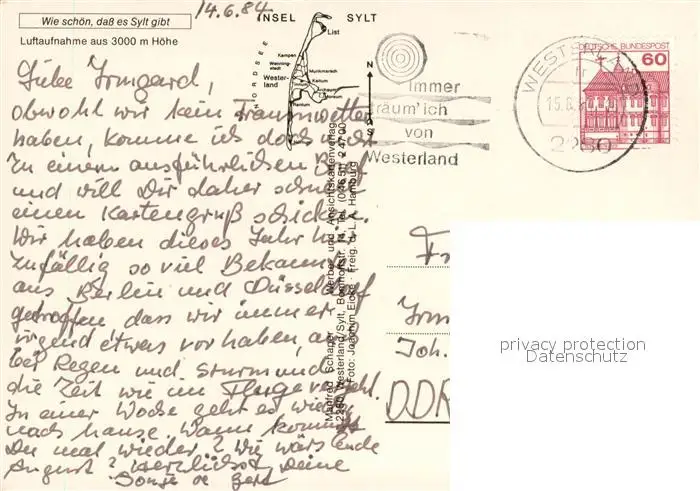 14.6.84
Wie schön, daß es Sylt gibt
Luftaufnahme aus 3000 m Höhe
Liebe Irmgard,
obwohl wir kein Traumwetter
haben, komme ich doch nicht
zu einem ausführlichen
und will Dir daher schnell
einen Kartengruß schicken.
Wir haben dieses Jahr
zufällig so viel Bekannte
aus Berlin und Düsseldorf
getroffen dass wir immer
irgend etwas vorhaben,
bei Regen und Sturm und
die Zeit wie im Fluge
In einer Woche geht es wieder
nach hause. Wann kommst
Du mal wieder? Wie wär's Ende
August? Herzlichst, Deine
INSEL SYLT
NORDSEE
List
Kampen
Wenning-
stedt
Wester-
land
Munkmarsch
Keitum
Morsum
Rantum
N
S
Manfred Schaper Werbe- und Ansichtskartenverlag
2280 Westerland/Sylt, Bomhoffstr. 14, Tel. (04651) 24700
Foto: Joachim Eicke · Freig. d. L. A. Hamburg
Immer
träum' ich
von
Westerland
WESTERLAND
2280
DEUTSCHE BUNDESPOST
60
Joh.
DDR
privacy protection
Datenschutz